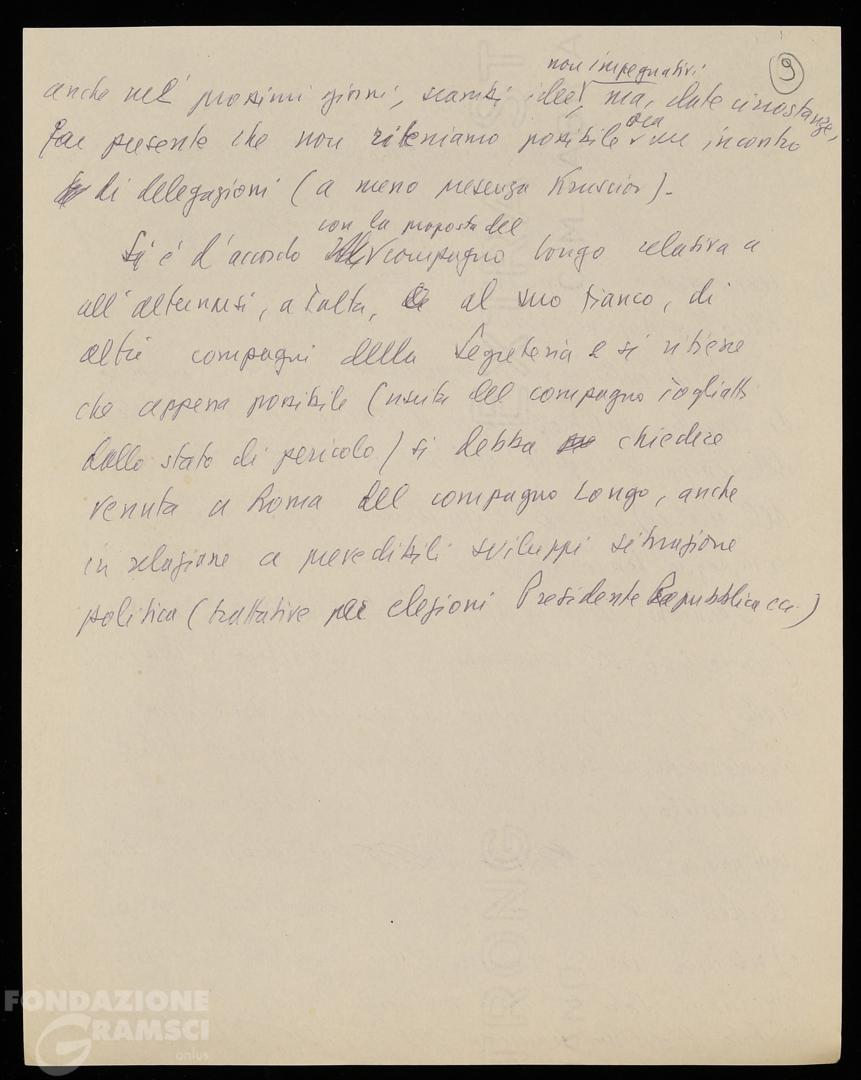 9
non impegnativi
anche nei prossimi giorni, scambi idee, ma, date circostanze,
far presente che non riteniamo possibile ora un incontro
di delegazioni (a meno presenza Krusciov).
con la proposta del
Si è d'accordo compagno Longo relativa a
all'alternarsi, a Yalta, al suo fianco, di
altri compagni della Segreteria e si ritiene
che appena possibile (uscita del compagno Togliatti
dallo stato di pericolo) si debba chiedere
venuta a Roma del compagno Longo, anche
in relazione a prevedibili sviluppi situazione
politica (trattative per elezioni Presidente Repubblica ecc.)
FONDAZIONE
GRAMSCI
onlus